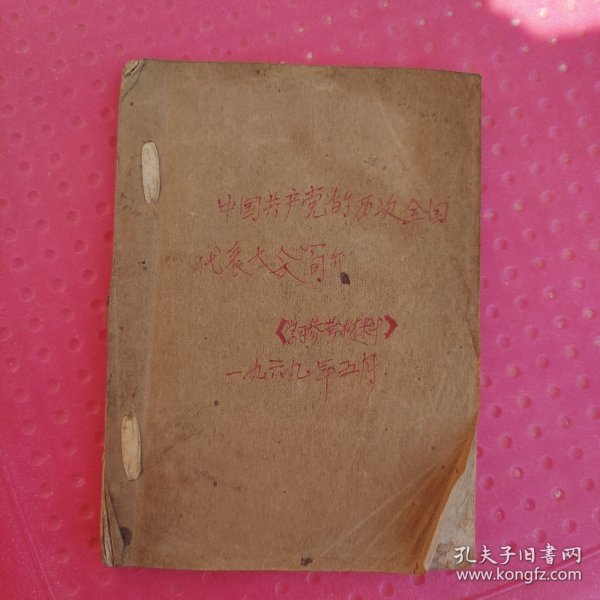 中国共产党的历次全国
代表大会简介
《参考材料》
一九六九年五月
孔夫子旧书网
www.kongfz.com